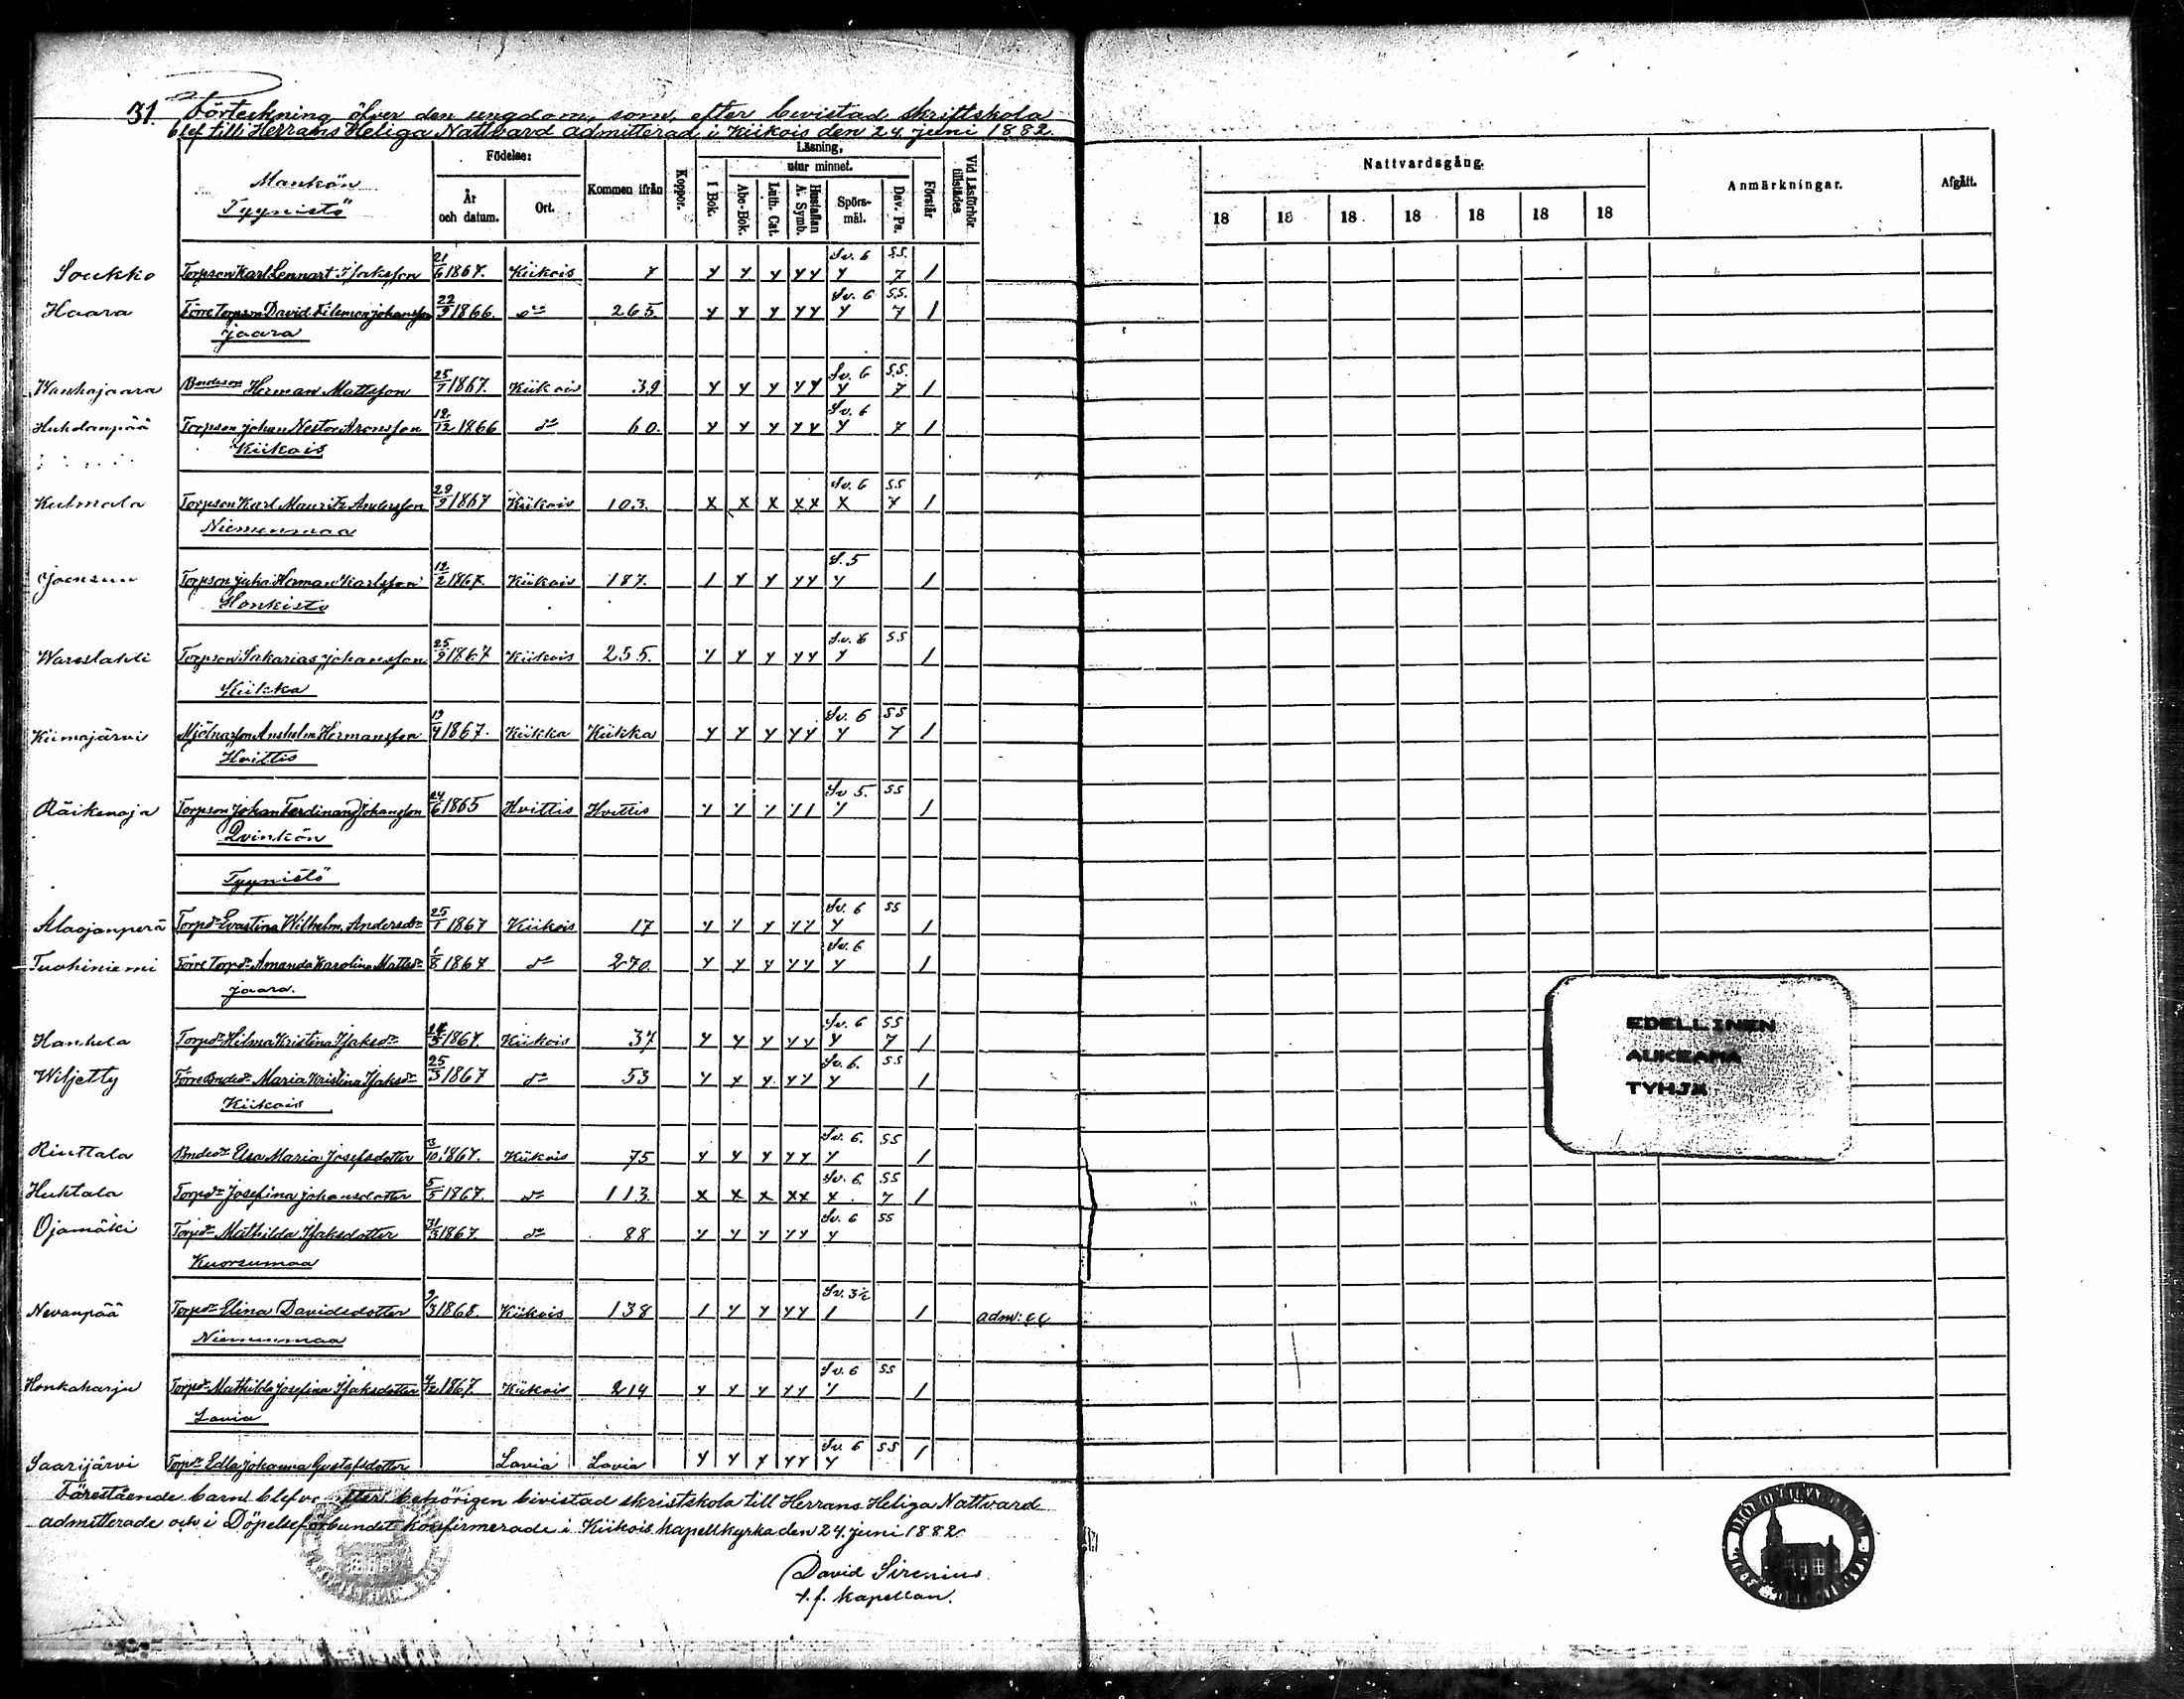 31. Förteckning öfver den ungdom, som, efter bevistad skriftskola
blef till Herrans Heliga Nattvard admitterad i Kiikois den 24 juni 1882.
Födelse: Läsning, utur minnet.
Mankön År och datum. Ort. Kommen ifrån Koppor. I Bok. Abc-Bok. Luth. Cat. Hustaflan A. Symb. Spörs-mål. Dav. Ps. Förstår Vid Läsförhör tillstädes
Nattvardsgång. Anmärkningar. Afgått.
18 18 18 18 18 18 18
Tyynistö
Sv. 6 SS.
Soukko Torpson Karl Lennart Isaksson 21/6 1867. Kiikois 7 y y y yy y 7 1
Sv. 6 SS.
Haara Förre Torpson David Filemon Johansson 22/9 1866. do 265. y y y yy y 7 1
Jaara
Sv. 6 SS.
Wanhajaara Bondeson Herman Mattsson 25/7 1867. Kiikois 39 y y y yy y 7 1
Sv. 6
Huhdanpää Torpson Johan Nestor Aronsson 12/12 1866 do 60. y y y yy y 7 1
Kiikois
Sv. 6 SS
Kulmala Torpson Karl Mauritz Andersson 29/9 1867 Kiikois 103. x x x xx x 7 1
Niemenmaa
S. 5
Joensuu Torpson Juho Herman Karlsson 12/2 1867. Kiikois 187. 1 y y yy y 1
Honkisto
Sv. 6 SS
Wareslahti Torpson Sakarias Johansson 25/9 1867 Kiikois 255. y y y yy y 1
Kiikka
Sv. 6 SS
Kiimajärvi Mjölnarson Anshelm Hermansson 19/4 1867. Kiikka Kiikka y y y yy y 7 1
Hvittis
Sv 5. SS
Räikenoja Torpson Johan Ferdinand Johansson 24/6 1865 Hvittis Hvittis y y y 11 y 1
Qvinkön
Tyynistö
Sv. 6 SS
Alaojanperä Torpdr Evastina Wilhelm. Andersdr 25/1 1867 Kiikois 17 y y y yy y 1
Sv. 6
Tuohiniemi Förre Torpdr Amanda Karolina Mattsdr 1/8 1867 do 270. y y y yy y 1
Jaara.
Sv. 6 SS
Hanhela Torpdr Hilma Kristina Isaksdr 1867. Kiikois 37 y y y yy y 7 1
Sv. 6. SS
Wiljetty Förre Bondedr Maria Kristina Isaksdr 25/3 1867 do 53 y y y yy y 1
Kiikois
Sv. 6. SS
Rinttala Bondedr Elsa Maria Josefsdotter 3/10 1867. Kiikois 75 y y y yy y 1
Sv. 6. SS
Huhtala Torpdr Josefina Johansdotter 5/5 1867. do 113. x x x xx x 7 1
Sv. 6 SS
Ojamäki Torpdr Mathilda Isaksdotter 31/3 1867. do 88 y y y yy y
Kuorsumaa
Sv. 3½
Nevanpää Torpdr Elina Davidsdotter 9/3 1868. Kiikois 138 1 y y yy 1 1
Niemenmaa
Sv. 6 SS
Honkaharju Torpdr Mathilda Josefina Isaksdotter 4/12 1867. Kiikois 214 y y y yy y 1
Lavia
Sv. 6 SS
Saarijärvi Torpdr Edla Johanna Gustafsdotter Lavia Lavia y y y yy y 1
EDELLINEN
AUKEAMA
TYHJÄ
Förestående barn blefvo efter behörigen bivistad skriftskola till Herrans Heliga Nattvard
admitterade och i Döpelseförbundet konfirmerade i Kiikois kapellkyrka den 24. juni 1882
David Sirenius
t.f. kapellan.